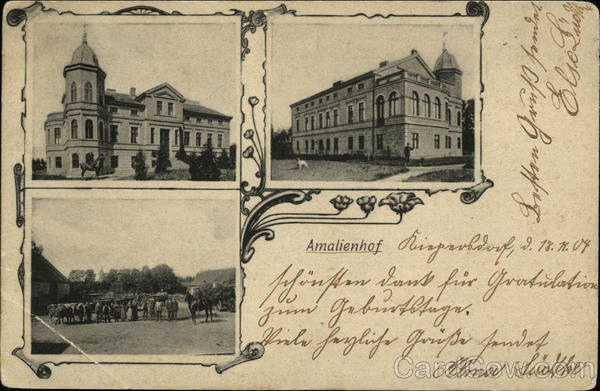 Amalienhof Kiepersdorf, d. 18.11.09
schönsten dank für Gratulation
zum Geburtstage.
Viele herzliche Grüße sendet
Lüdtke
Besten Gruß sendet
Else Lüdtke
CardCow.com